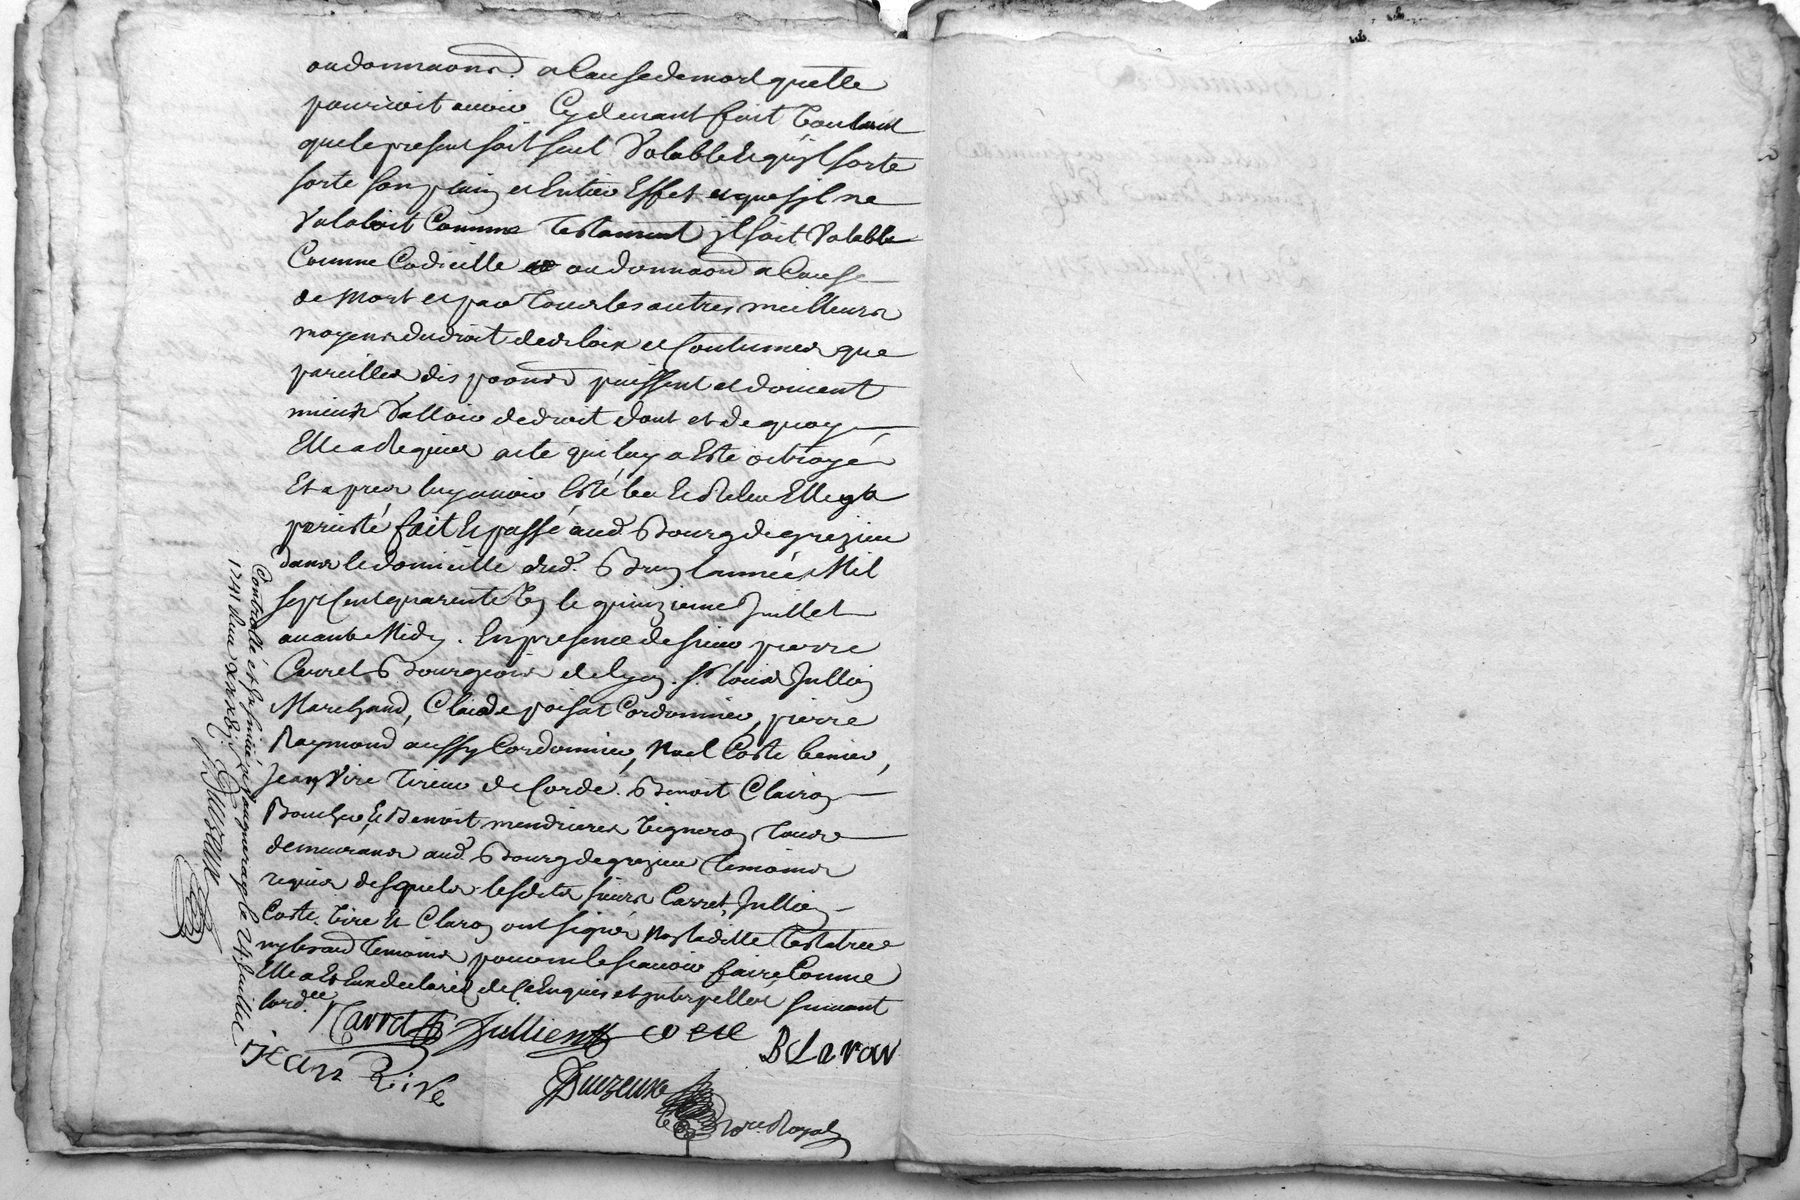 oudonnaons. a Cause de mort quelle
pourroit avoir Cy devant fait Voulant
que le present soit seul Valable et quil sorte
sorte son plain et Entier Effet et que sil ne
Valoloit Comme Testament il soit Valable
Comme Codicille ou donnaon a Cause
de Mort et par Tous les autres meilleurs
moyens du droit des loix et Coutumes que
pareilles dispoons puissent et doivent
mieux Valloir de droit dont et de quoy
Elle a Requis acte qui luy a Esté octroyé
Et apres luy avoir Esté leu Et Releu Elle y a
peristé fait Et passé aud. Bourg de grezieu
dans le domicille dud. Bruy lannée Mil
sept Cent quarente Un le quinzieme Juillet
avant Midy. En presence de sieur pierre
Carret Bourgeois de lyon. sr. louis Jullien
Marchand, Claude poisat Cordonnier, pierre
Raymond aussy Cordonnier, Noel Coste
Jean Vire Tireur de Corde. Benoit Clairon
Boucher Et Benoit mendrieres Vigneron Tous
demeurans aud. Bourg de grezieu Temoins
requis desquels lesdits sieurs Carret, Jullien
Coste. Vire Et Claron ont signés Non laditte Testatrice
ny les aud Temoins pour ne le scavoir faire Comme
Elle a Et Eux declarés de Ce Enquis et interpellés suivant
lordce.
Carret Jullien coste
B Claron
jean Vire
Duizeux
Nore. Royal
Controllé et Insinué a vaugneray le 24 Juillet
1741